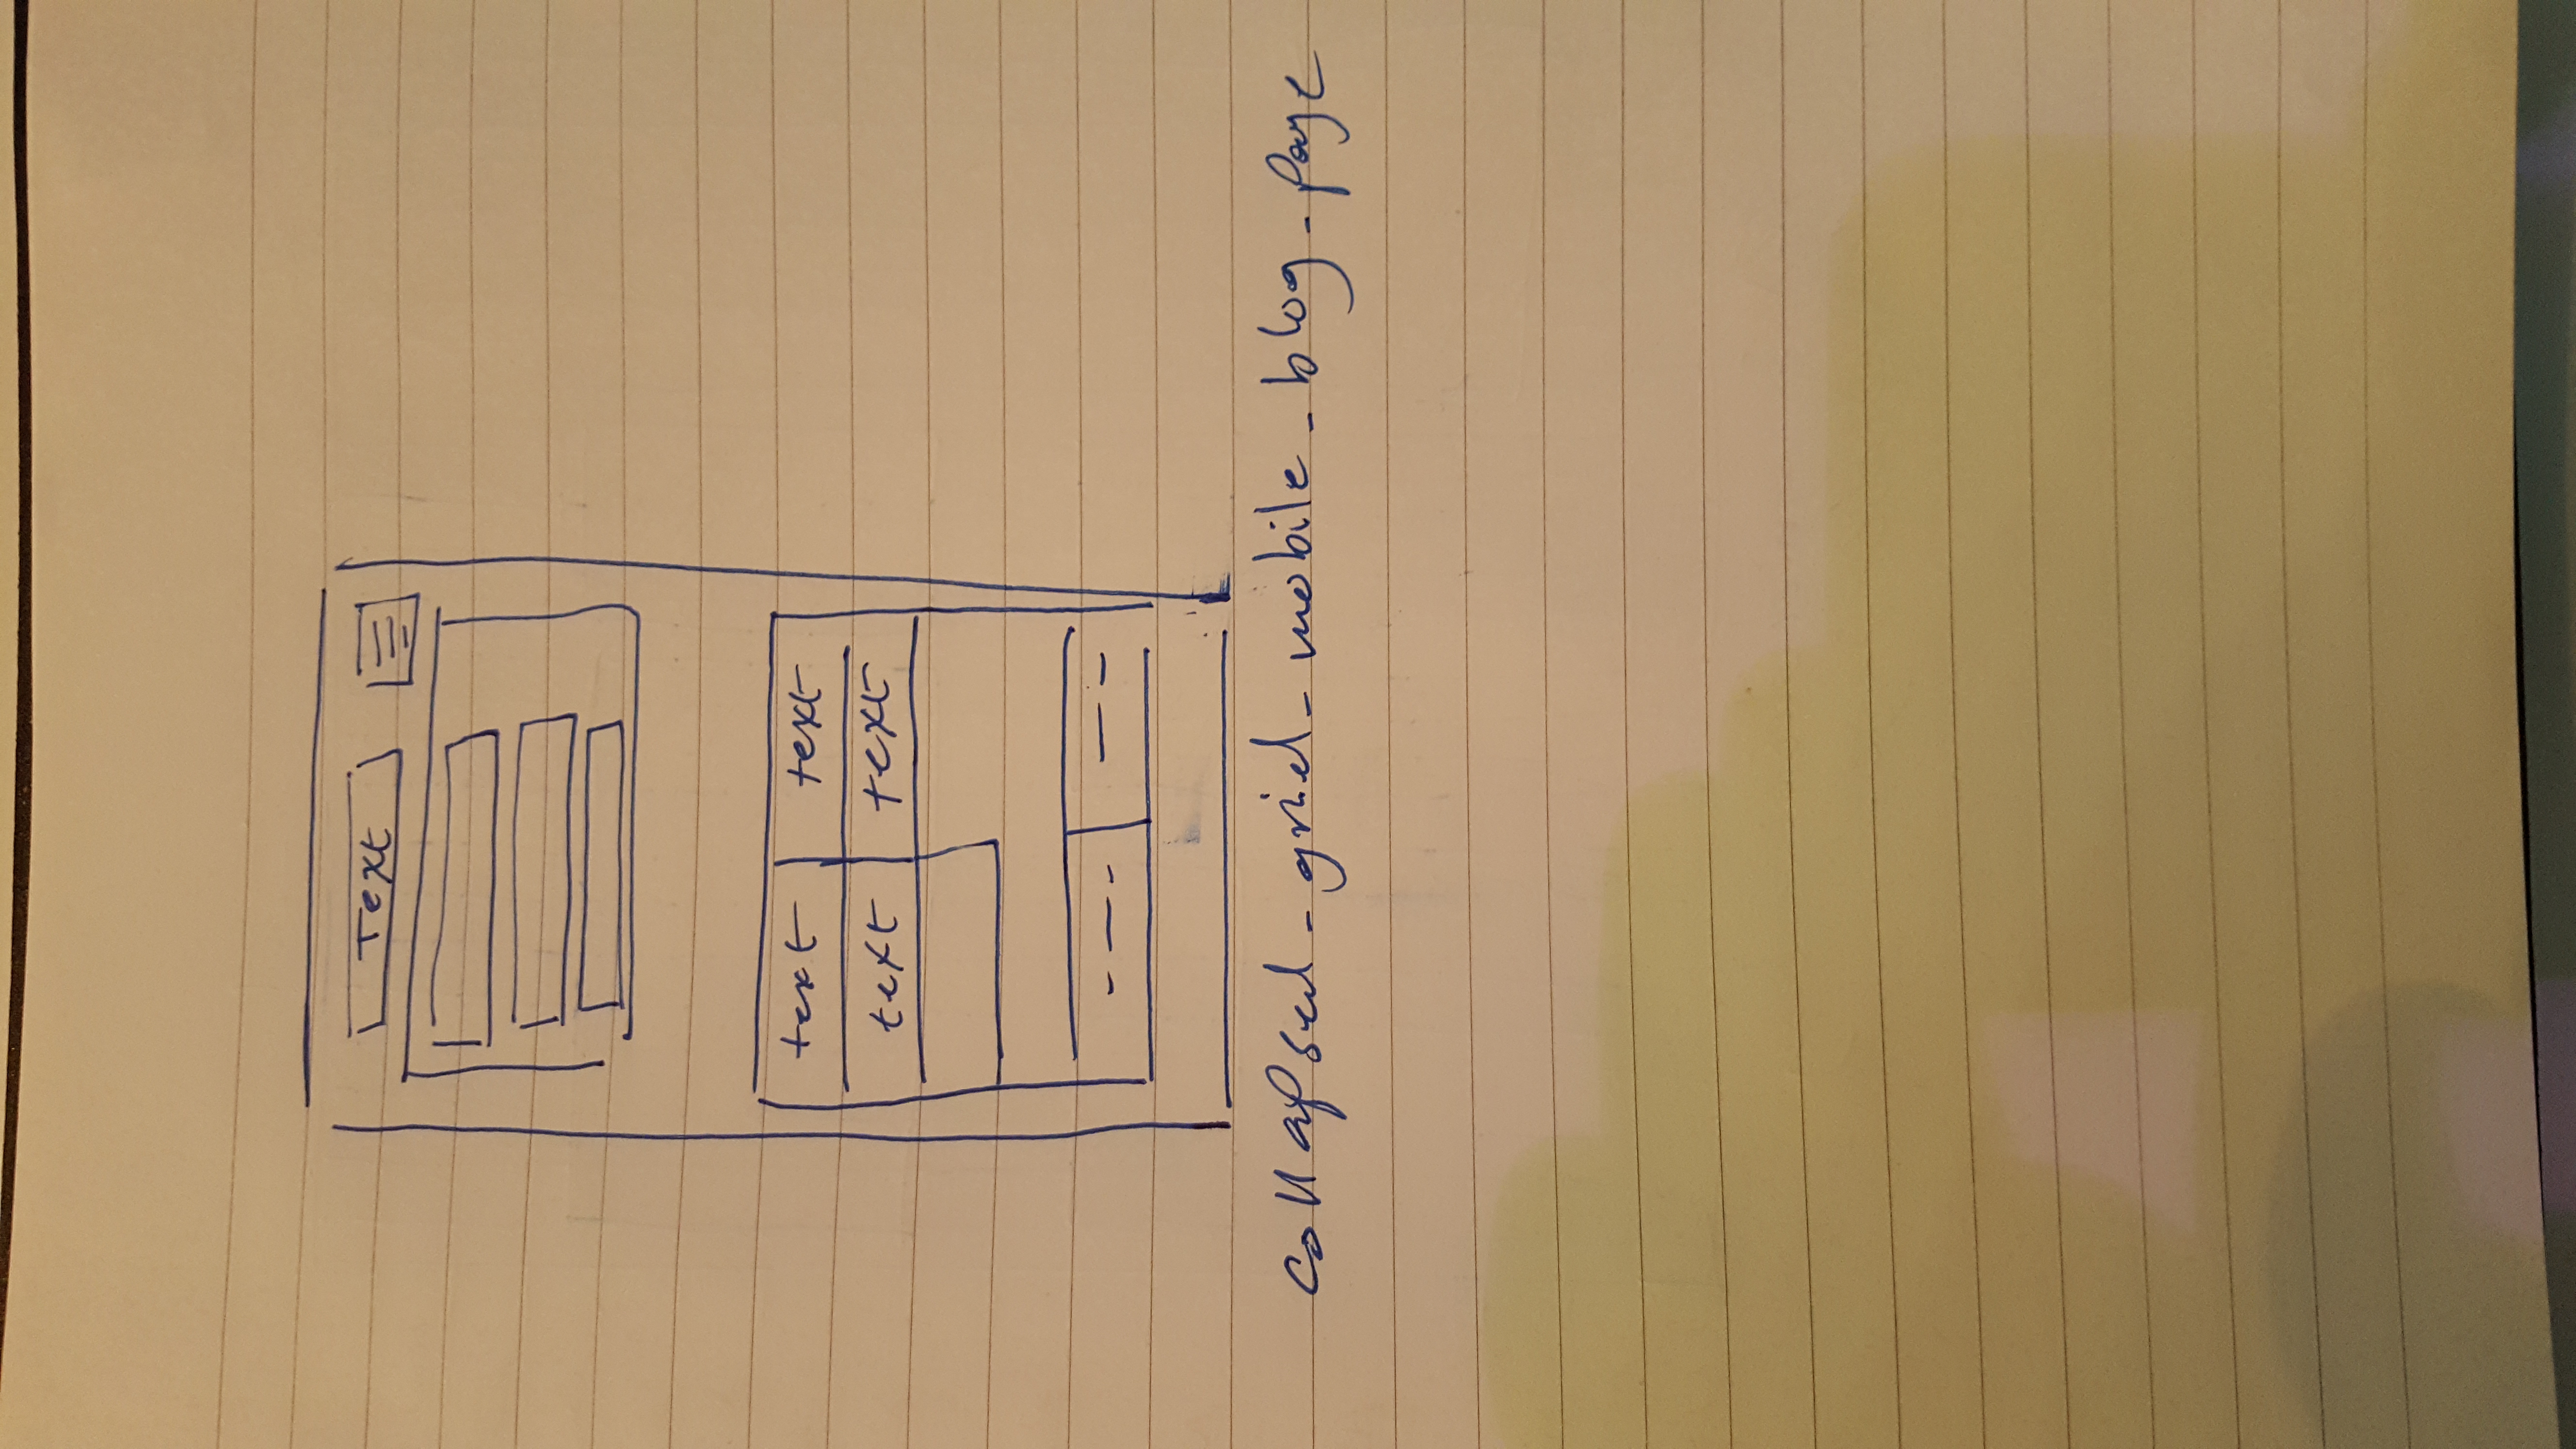 Text
text text
text text
collapsed_grid_mobile_blog_page